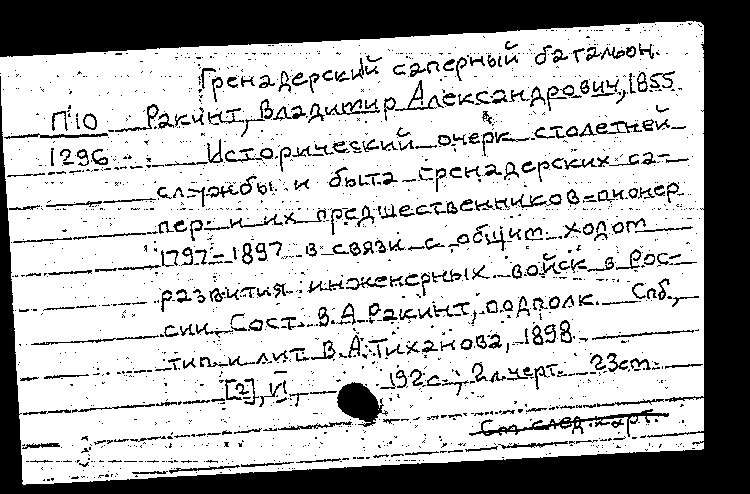 Гренадерский саперный батальон.
П10 Ракинт, Владимир Александрович, 1855
1296 Исторический очерк столетней
службы и быта гренадерских са-
пер и их предшественников-пионер
1797-1897 в связи с общим ходом
развития инженерных войск в Рос-
сии. Сост. В.А Ракинт, подполк. Спб.,
тип. и лит. В.А. Тиханова, 1898
[2], VI, 192 с., 2 л. черт. 23 cm.
См след. карт.